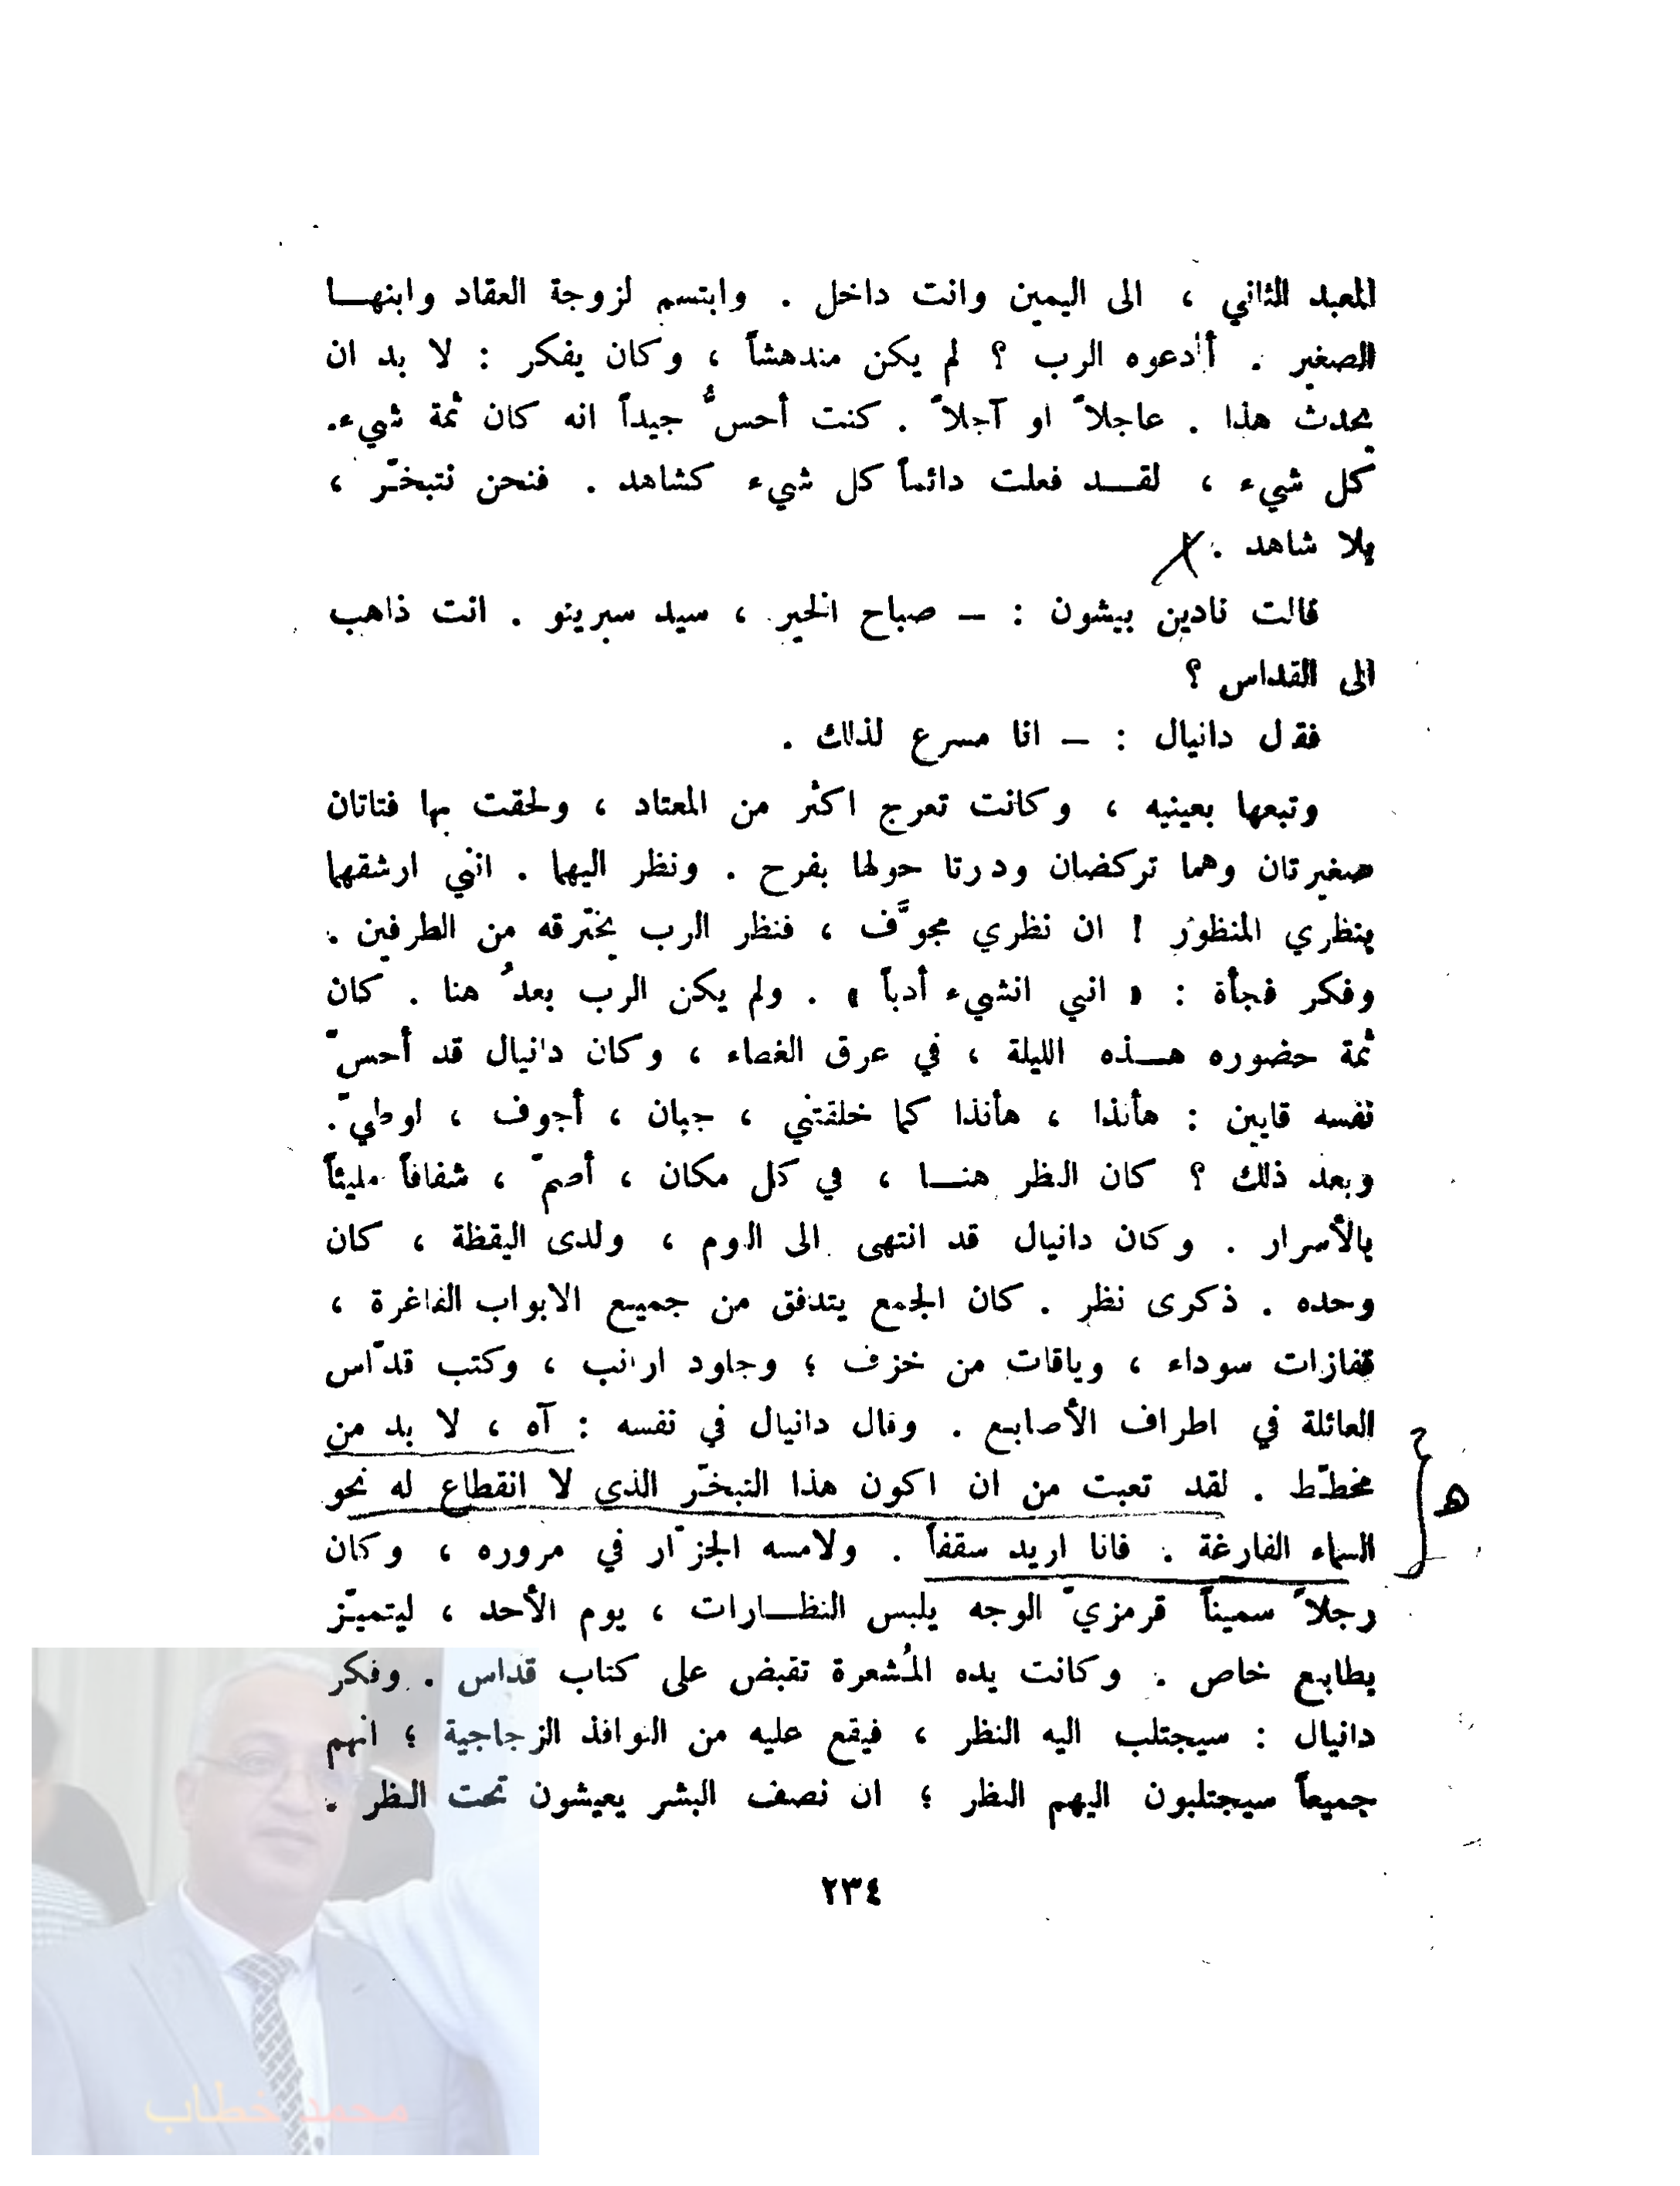 المعبد الثاني ، الى اليمين وانت داخل . وابتسم لزوجة العقاد وابنهـــا
الصغير . أأدعوه الرب ؟ لم يكن مندهشاً ، وكان يفكر : لا بد ان
يحدث هذا . عاجلاً او آجلاً . كنت أحسُّ جيداً انه كان ثمة شيء.
كل شيء ، لقـــد فعلت دائماً كل شيء كشاهد . فنحن نتبخّر ،
بلا شاهد .
قالت نادين بيشون : – صباح الخير ، سيد سيرينو . انت ذاهب
الى القداس ؟
فقال دانيال : – انا مسرع لذلك .
وتبعها بعينيه ، وكانت تعرج اكثر من المعتاد ، ولحقت بها فتاتان
صغيرتان وهما تركضان ودرتا حولها بفرح . ونظر اليهما . انني ارشقهما
بنظري المنظور ! ان نظري مجوَّف ، فنظر الرب يخترقه من الطرفين .
وفكر فجأة : « انني انشيء أدباً » . ولم يكن الرب بعدُ هنا . كان
ثمة حضوره هـــذه الليلة ، في عرق الغطاء ، وكان دانيال قد أحسّ
نفسه قايين : هأنذا ، هأنذا كما خلقتني ، جبان ، أجوف ، لوطيّ.
وبعد ذلك ؟ كان النظر هنـــا ، في كل مكان ، أصمّ ، شفافاً مليئاً
بالأسرار . وكان دانيال قد انتهى الى النوم ، ولدى اليقظة ، كان
وحده . ذكرى نظر . كان الجمع يتدفق من جميع الابواب الفاغرة ،
قفازات سوداء ، وياقات من خزف ؛ وجلود ارانب ، وكتب قدّاس
العائلة في اطراف الأصابع . وقال دانيال في نفسه : آه ، لا بد من
مخطّط . لقد تعبت من ان اكون هذا التبخّر الذي لا انقطاع له نحو
السماء الفارغة . فانا اريد سقفاً . ولامسه الجزّار في مروره ، وكان
رجلاً سميناً قرمزيّ الوجه يلبس النظـــارات ، يوم الأحد ، ليتميّز
بطابع خاص . وكانت يده المُشعرة تقبض على كتاب قداس . وفكر
دانيال : سيجتلب اليه النظر ، فيقع عليه من النوافذ الزجاجية ؛ انهم
جميعاً سيجتلبون اليهم النظر ؛ ان نصف البشر يعيشون تحت النظر .
٢٣٤
ه
محمد خطاب